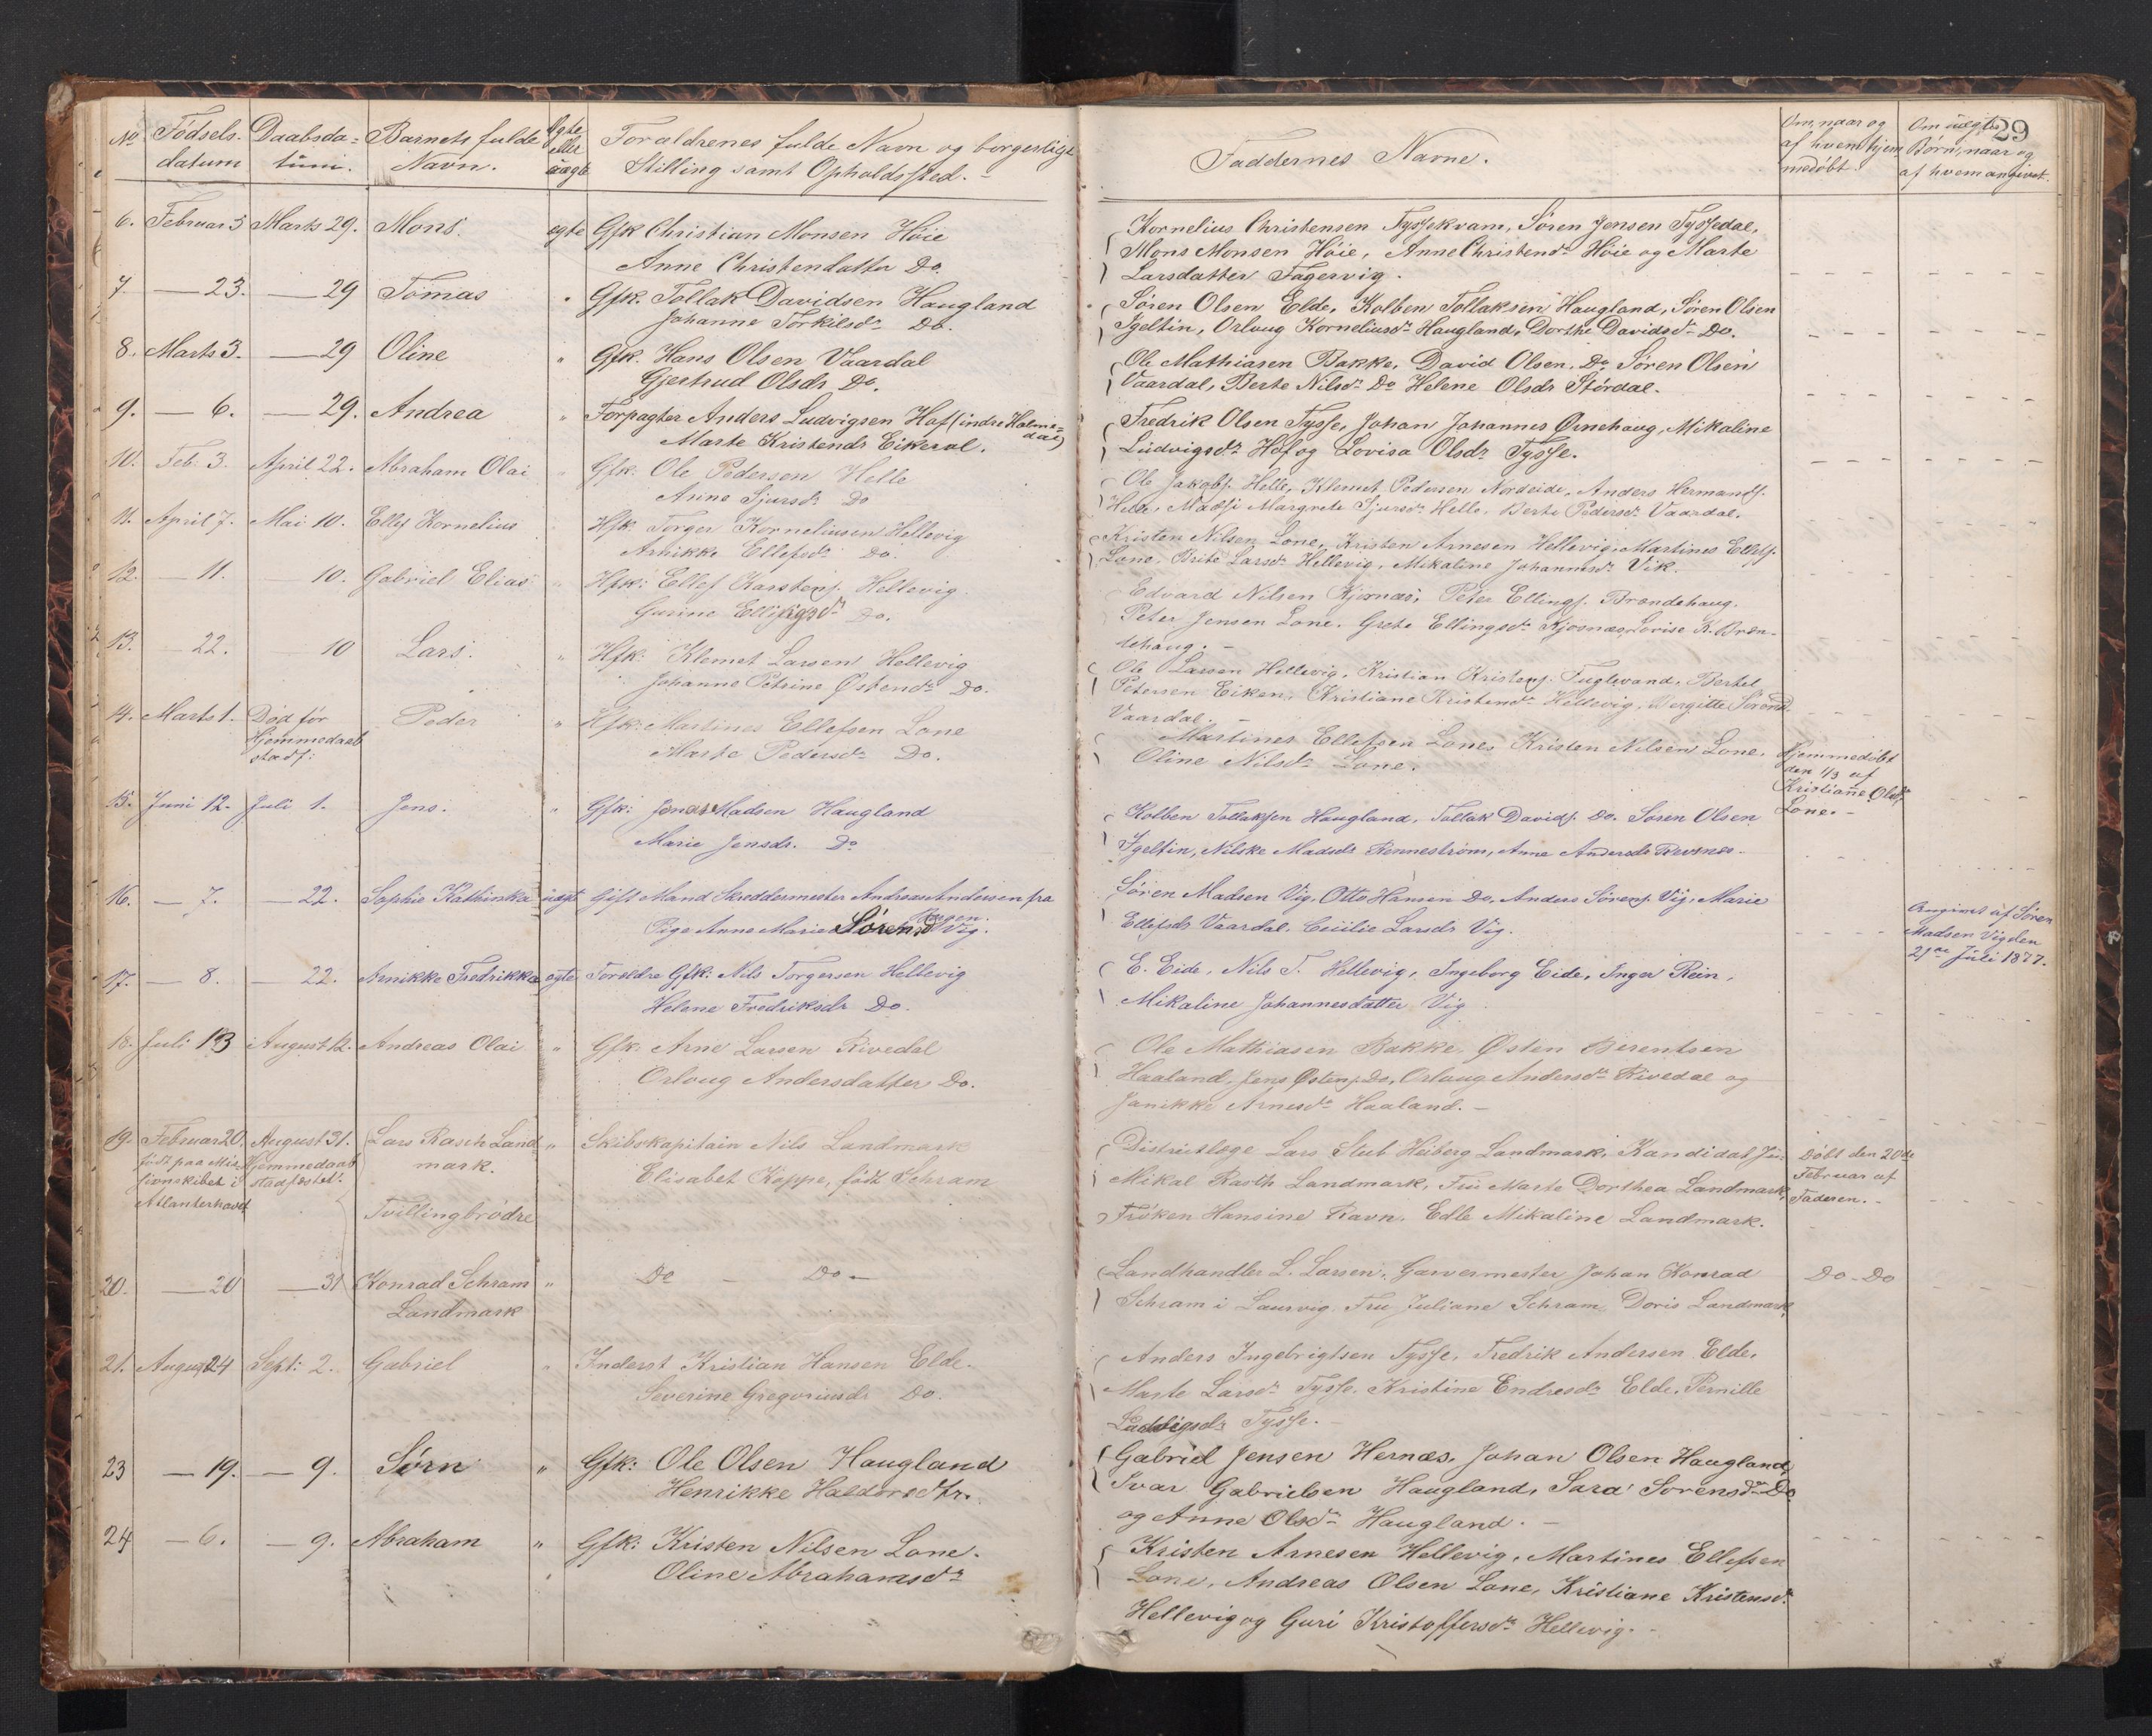 29
No Fødsels- datum Daabsda- tum. Barnets fulde Navn. Ægte eller uægte Forældrenes fulde Navn og borgerlige Stilling samt Opholdssted. -
Faddernes Navne.
Om, naar og af hvem hjemmedøbt.
Om uægte Børn, naar og af hvem angivet.
6. Februar 3 Marts 29. Mons. egte Gfk Christian Monsen Høie
Anne Christendatter Do.
Kornelius Christensen Tyssekvam, Søren Jensen Tyssedal,
Mons Monsen Høie, Anne Christendr Høie og Marte
Larsdatter Fagervig.
7. — 23. — 29 Tomas " Gfk. Tollak Davidsen Haugland
Johanne Torkilsdr Do.
Søren Olsen Elde, Kolben Tollaksen Haugland, Søren Olsen
Igeltin, Orloug Korneliusdr Haugland, Dorthe Davidsdr Do.
8. Marts 3. — 29 Oline " Gfk. Hans Olsen Vaardal
Gjertrud Olsdr Do.
Ole Mathiasen Bakke, David Olsen, Do Søren Olsen
Vaardal, Berte Nilsdr Do Helene Olsdr Stórdal.
9. — 6. — 29. Andrea " Forpagter Anders Ludvigsen Hof (indre Holme-
dal)
Marte Kristendr Eikeral.
Fredrik Olsen Tysse, Johan Johannes Ørnehaug, Mikaline
Ludvigsdr Hof og Lovisa Olsdr Tysse.
10. Feb. 3. April 22. Abraham Olai " Gfk: Ole Pedersen Helle
Anne Sjursdr Do
Ole Jakobs. Helle, Klemet Pedersen Nordeide, Anders Hermands.
Helle, Madsi Margrete Sjursdr Helle, Berte Pedersdr Vaardal.
11. April 7. Mai 10. Ellef Kornelius Hfk: Torger Korneliusen Hellevig
Arnikke Ellefsdr Do.
Kristen Nilsen Lone, Kristen Arnesen Hellevig, Martines Ellefs.
Lone, Brite Larsdr Hellevig, Mikaline Johannesdr Vik.
12. — 11. — 10. Gabriel Elias " Hfk: Ellef Karstens. Hellevig.
Gurine Ellingsdr Do.
Edvard Nilsen Kjosnæs, Peter Ellings. Brændehaug.
Peter Jensen Lone. Grete Ellingsdr Kjosnæs, Lovise K. Bræn-
dehaug. -
13. — 22. — 10 Lars. " Hfk: Klemet Larsen Hellevig
Johanne Petrine Østensdr Do.
Ole Larsen Hellevig, Kristian Kristens. Fuglevand, Bertel
Petersen Eiken, Kristiane Kristensdr Hellevig, Bergitte Sørend.
Vaardal. -
14. Marts 1. Død før Hjemmedaab stadf: Peder " Hfk: Martines Ellefsen Lone
Marte Pedersdr Do.
Martines Ellefsen Lone, Kristen Nilsen Lone,
Oline Nilsdr Lone.
Hjemmedøbt
den 1/3 af
Kristiane Olsdr
Lone. -
15. Juni 12. Juli 1. Jens. " Gfk: Jonas Madsen Haugland
Marie Jensdr. Do
Kolben Tollaksen Haugland, Tollak Davids. Do. Søren Olsen
Igeltin, Nilske Madsdr Rennestrøm, Anne Andersdr Revsnæs.
16. — 7. — 22. Sophie Kathinka uægt Gift Mand Skreddermester Andreas Andersen fra
Bergen.
Pige Anne Marie Sørensd Vig.
Søren Madsen Vig, Otto Hansen Do, Anders Sørens. Vig, Marie
Ellefsdr Vaardal, Cecilie Larsdr Vig.
Angivet af Søren
Madsen Vig den
21de Juli 1877.
17. — 8. — 22. Arnikke Fredrikka egte Foreldre Gfk: Nils Torgersen Hellevig
Helene Fredriksdr Do.
E. Eide, Nils T. Hellevig, Ingeborg Eide, Inger Rein,
Mikaline Johannesdatter Vig
18. Juli 13 August 12. Andreas Olai " Gfk: Arne Larsen Rivedal
Orloug Andersdatter Do.
Ole Mathiasen Bakke, Østen Berentsen
Haaland, Jens Østens. Do, Orloug Andersdr Rivedal og
Janikke Arnesdr Haaland. -
19. Februar 20. født paa Mis- sionskibet i Atlanterhavet August 31. Hjemmedaab stadfæstet. Lars Rasch Land- mark. " Skibskapitain Nils Landmark
Elisabet Kappe, født Schram
Tvillingbrødre
Distriktlæge Lars Stub Heiberg Landmark, Kandidat Jur.
Mikal Rasch Landmark, Fru Marte Dorthea Landmark,
Frøken Hansine Ravn, Edle Mikaline Landmark.
Døbt den 20de
Februar af
Faderen. -
20. — 20 — 31 Konrad Schram Landmark " Do — Do —
Landhandler L. Larsen, Garvermester Johan Konrad
Schram i Laurvig, Fru Juliane Schram, Doris Landmark,
Do - Do
21. August 24 Sept: 2. Gabriel " Inderst Kristian Hansen Elde.
Severine Gregoriusdr Do.
Anders Ingebrigtsen Tysse, Fredrik Andersen Elde,
Marte Larsdr Tysse. Kristine Endresdr Elde, Pernille
Ludvigsdr Tysse. -
23 — 19. — 9. Sørn " Gfk: Ole Olsen Haugland
Henrikke Haldorsdtr.
Gabriel Jensen Hernæs, Johan Olsen Haugland,
Ivar Gabrielsen Haugland, Sara Sørensdr Do
og Anne Olsdr Haugland. -
24 — 6. — 9. Abraham " Gfk: Kristen Nilsen Lone.
Oline Abrahamsdr
Kristen Arnesen Hellevig, Martines Ellefsen
Lone, Andreas Olsen Lone, Kristiane Kristensdr
Hellevig og Guri Kristoffersdr Hellevig. -